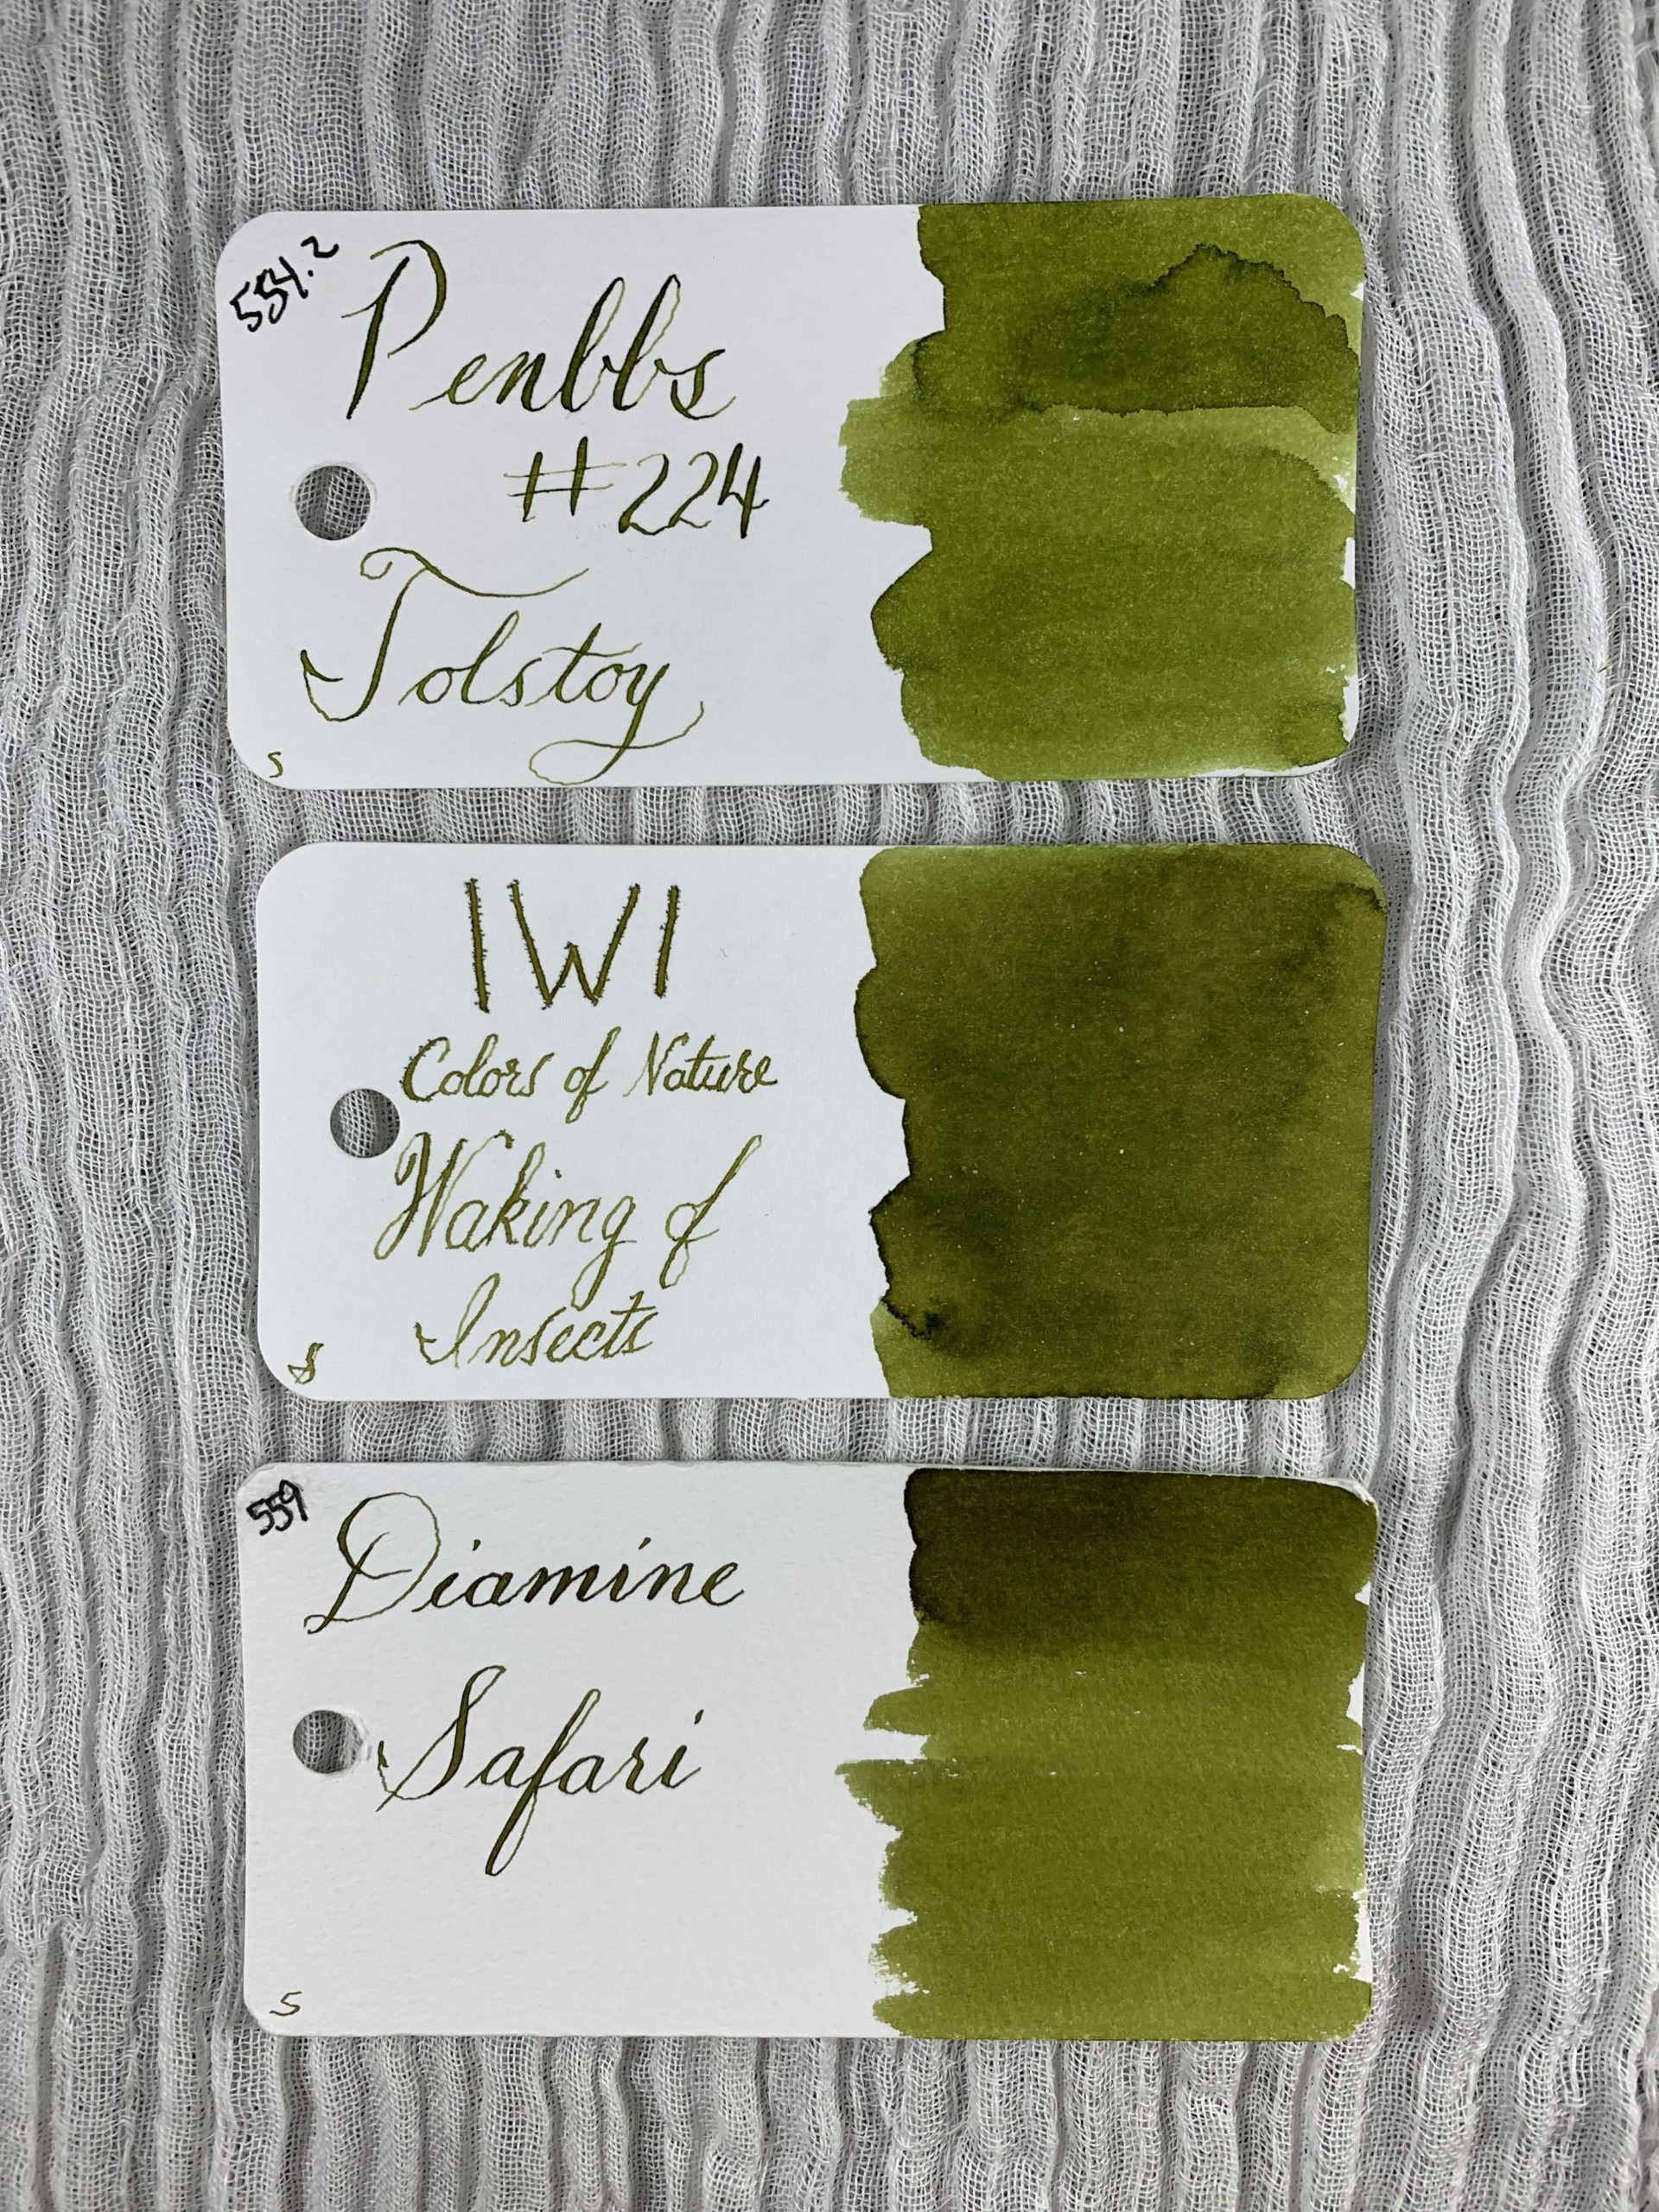 554.2
Penbbs
#224
Tolstoy
S
IWI
Colors of Nature
Waking of
Insects
S
559
Diamine
Safari
S